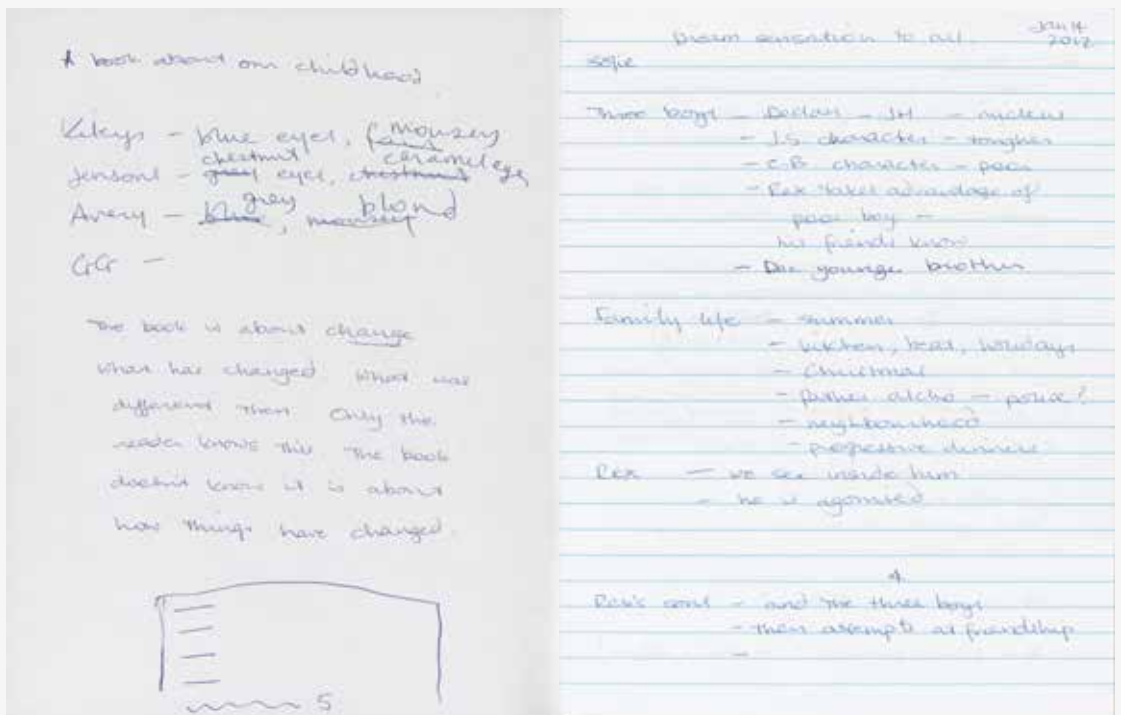 A book about our childhood.
Kileys - blue eyes, fair mousey
Jensons - grey chestnut eyes, chestnut caramel eyes
Avery - blue grey, mousey blond
GG -
The book is about change
what has changed. What was
different then. Only the
reader knows this. The book
doesn't know it is about
how things have changed.
5
Jan 14
2012
Dream sensation to all.
Three boys - Declan - JH - nuclear
- J.S. character - tougher
- C.B. character - poor
- Rex takes advantage of
poor boy -
his friends know
- Doc younger brother
Family life - summer
- kitchen, heat, holidays
- Christmas
- father alcho - police?
- neighbourhood
- progressive dinners
Rex - we see inside him
- he is agonised
Rex's sons - and the three boys
- their attempts at friendship
-